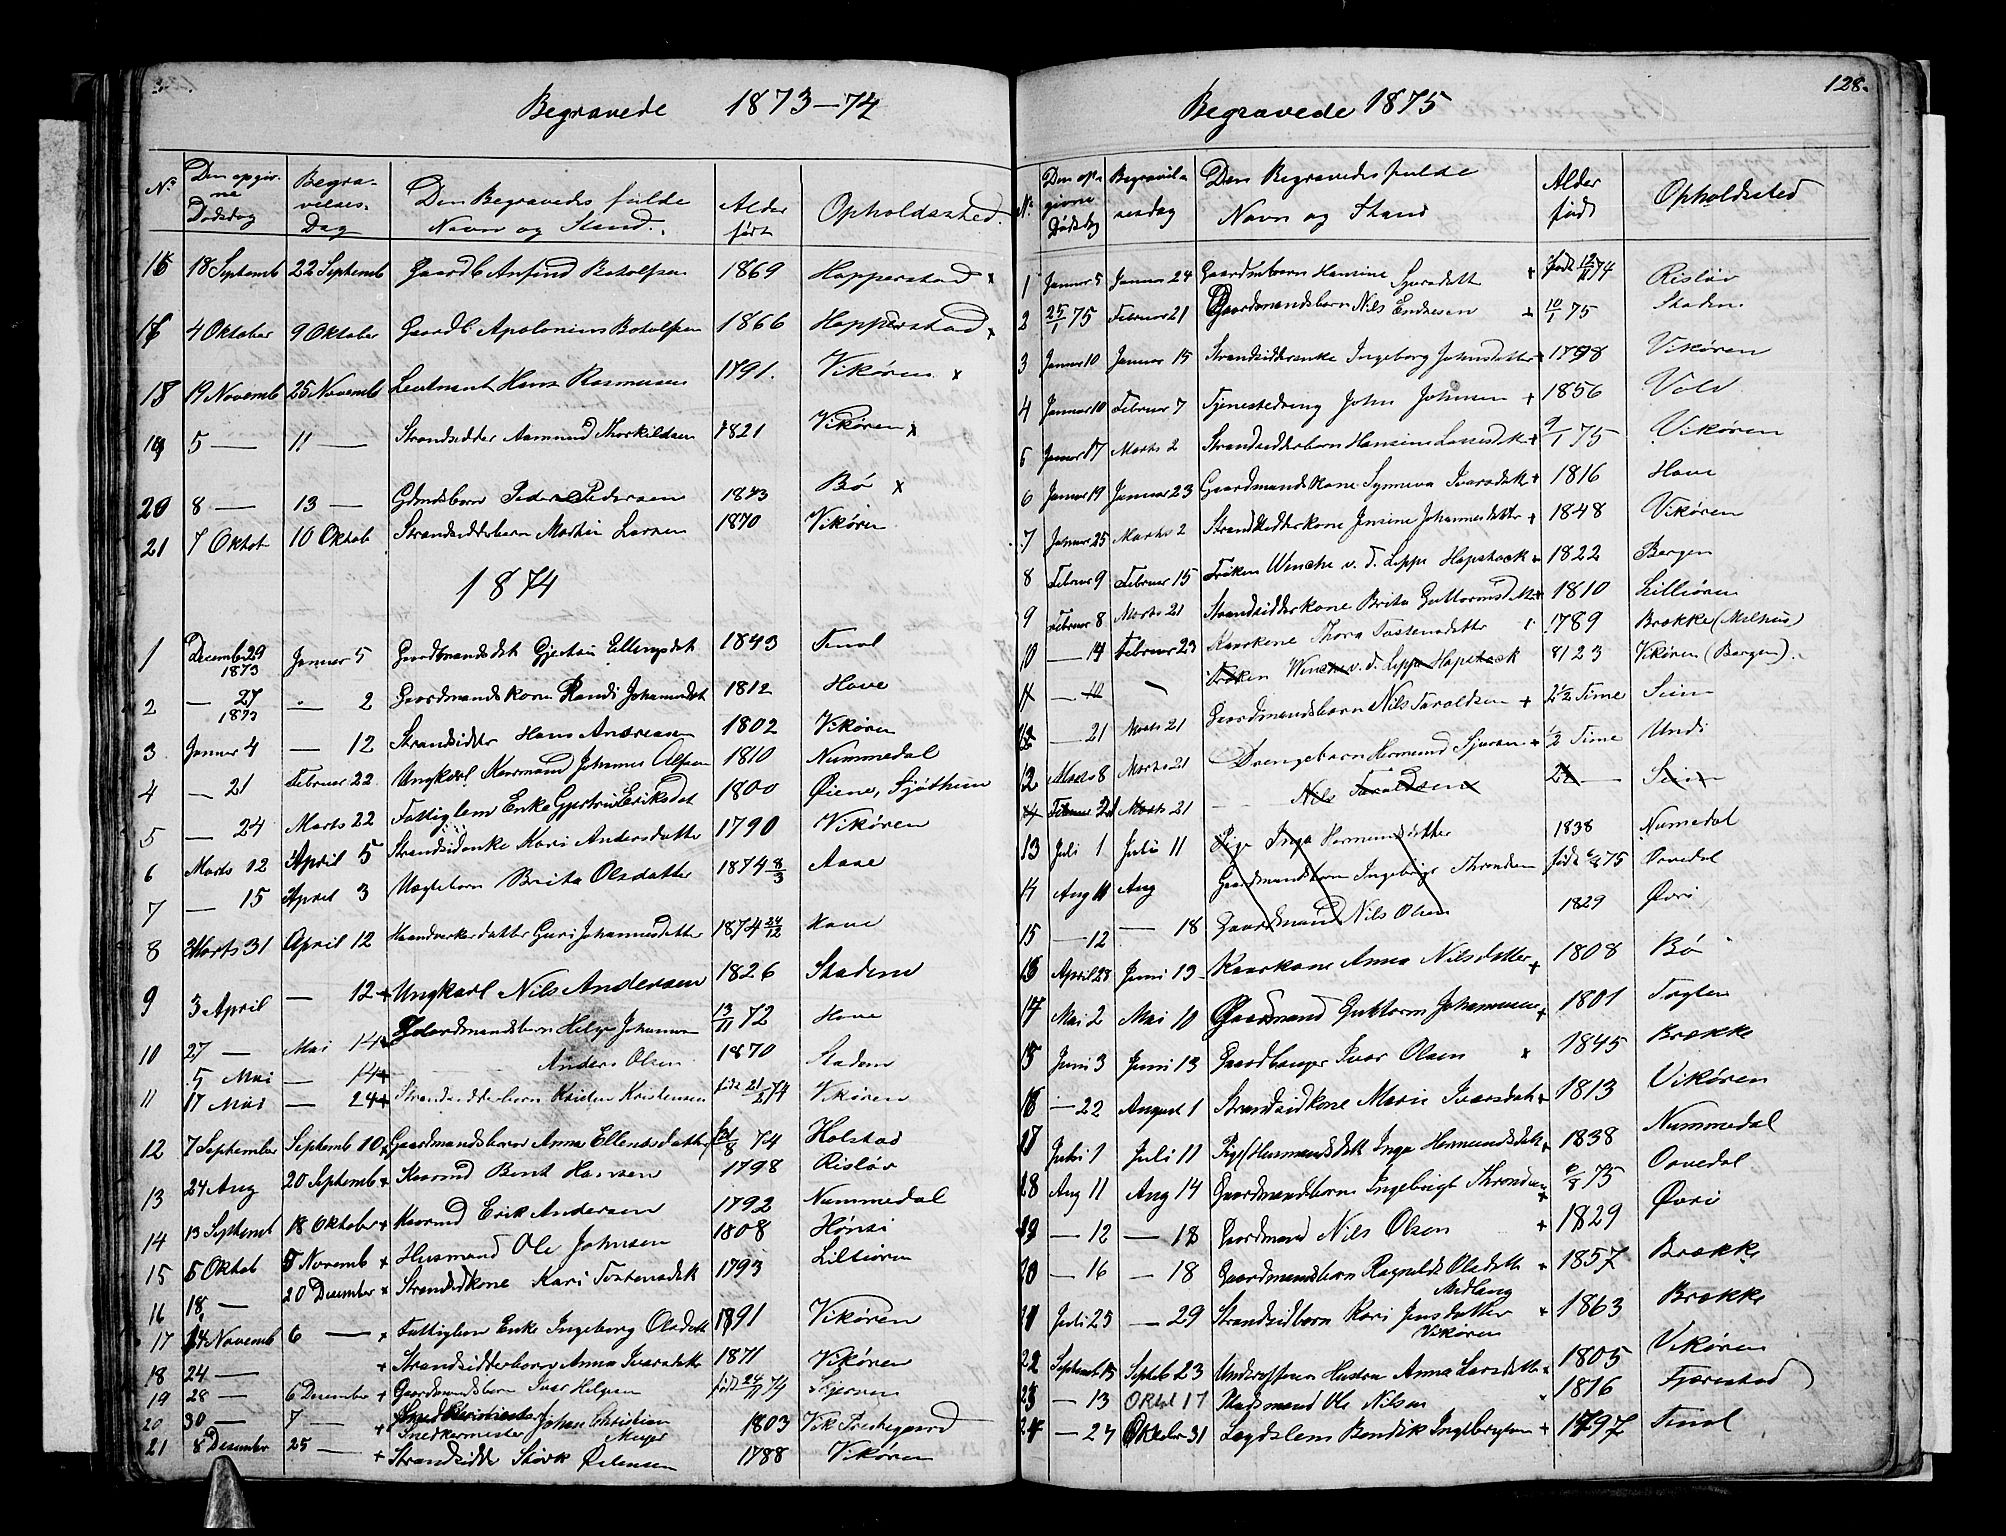 Begravede 1873–74
No Den opgivne Dødsdag Begravelses-Dag Den Begravedes fulde Navn og Stand. Alder født Opholdssted.
16 18 Septemb 22 Septemb Gaardb Anfind Botolfsen 1869 Hopperstad x
4 Oktober 9 Oktober Gaardb Apolonius Botolfsen 1866 Hopperstad x
18 19 Novemb 25 Novemb Leutnant Hans Rasmussen 1791. Vikøren x
19 5 — 11 — Strandsidder Aamund Thorkildsen 1821 Vikøren x
20 8 — 13 — Gdmdsbarn Peder Pedersen 1873 Bø x
21 7 Oktob 10 Oktob Strandsidderbarn Martin Larsen 1870 Vikøren
1874
1 December 29 1873 Januar 5 Gaardmandsdt Gjertrui Ellingsdt 1843 Tenol
2 — 27 1873 — 2 Gaardmandskone Randi Johannesdt 1812 Hove
3 Januar 4 — 12 Strandsidder Hans Andersen 1802 Vikøren
4 — 21 Februar 22 Ungkarl Kaarmand Johannes Olsen 1810 Nummedal
5 — 24 Marts 22 Fattiglem Enke Gjertrui Eriksdt 1800 Øiene, Sjøthun
6 Marts 12 April 5 Strandsidenke Kari Andersdatter 1790 Vikøren
7 — 15 April 3 Uægtebarn Brita Olsdatter 1874 8/3 Aase
8 Marts 31 April 12 Haandverkerdatter Guri Johannesdatter 1874 24/12 Hove
9 3 April — 12 + Ungkarl Nils Andersen 1826 Stadem
10 27 — Mai 14 + Gaardmandsbarn Helge Johannesen 13/11 72 Hove
5 Mai — 14 + Anders Olsen 1870 Stadem
11 17 Mai — 24 + Strandsidderbarn Kristen Kristensen født 21/2 74 Vikøren
12 7 September Septemb 10 + Gaardmandsbarn Anna Ellensdatter /8 74 Holstad
13 24 Aug 20 Septemb + Kaarmd Bent Hansen 1798 Risløv
14 13 Septemt 18 Oktober + Kaarmd Erik Andersen 1792 Nummedal
15 5 Oktob 5 Novemb + Husmand Ole Johnsen 1808 Hønsi
16 18 — 20 December + Strandsidkone Kari Tostensdt 1793 Lilliøren
17 14 Novemb 6 — + Fattiglem Enke Ingeborg Olsdatt 1791 Vikøren
18 24 — + Strandsidderbarn Anna Ivarsdatt 1871 Vikøren
19 28 — 6 December + Gaardmandsbarn Ivar Helgesen født 24/11 74
20 30 — 7 — + Snedkermester Johan Christian Meyer 1803 Vik Prestegaard
21 8 Desember 25 — + Strandsidder Størk Ødensen 1788 Vikøren
128.
Begravede 1875
No Den opgivne Dødsdag Begravelsesdag Den Begravedes fulde Navn og Stand Alder født Opholdssted
1 Januar 5 Januar 24 Gaardmbarn Hansine Sjursdatt + født 12/11 74 Risløv
2 25/1 75 Februar 21 Gaardmandsbarn Nils Endresen + 10/1 75 Stadem
3 Januar 10 Januar 15 Strandsidderenke Ingeborg Johnsdatter + 1798 Vikøren
4 Januar 10 Februar 7 Tjenestedreng John Johnsen + 1856 Vold
5 Januar 17 Marts 2 Strandsidderbarn Hansine Larsdatt + 9/1 75 Vikøren
6 Januar 19 Januar 23 Gaardmandskone Synneva Ivarsdatt + 1816 Hove
7 Januar 25 Marts 2 Strandsidderkone Jensine Johannesdatter + 1848 Vikøren
8 Februar 9 Februar 15 Frøken Wenche v. d. Lippe Hopstock + 1822 Bergen
9 Februar 8 Marts 21 Strandsidderkone Brita Guttormsdatt + 1810 Lilliøren
10 — 14 Februar 23 Kaarkone Thora Tostensdatter + 1789 Brække (Melhus)
11 — 10 Frøken Wenche v. d. Lippe Hopstock 8/1 23 Vikøren (Bergen).
— 21 Marts 21 Gaardmandsbarn Nils Taraldsen + 2 1/2 Time Seim
12 Marts 8 Marts 21 Drengebarn Hermund Sjursen + 1/2 Time Undi
Februar 21 Marts 21 — Nils Taraldsen 2 1/2 — Seim
13 Juli 1 Juli 11 Pige Inga Hermundsdatter 1838 Numedal
14 Aug 11 Aug Gaardmandsbarn Ingebrigt Throndsen født 6/8 75 Ovedal
15 — 12 — 18 Gaardmand Nils Olsen 1829 Øvri
13 April 28 Juni 13 Kaarkone Anna Nilsdatter + 1808 Bø
14 Mai 2 Mai 10 Gaardmand Guttorm Johannesen + 1801 Togten
15 Juni 3 Juni 13 Gaardbruger Ivar Olsen x 1845 Brække
16 — 22 August 1 Strandsidkone Marie Ivarsdatt + 1813 Vikøren
17 Juli 1 Juli 11 Pige (Husmandsdt Inga Hermundsdatt + 1838 Nummedal
18 Aug 11 Aug 14 Gaardmandsbarn Ingebrigt Throndsen + 6/8 75 Ovedal
19 — 12 — 18 Gaardmand Nils Olsen + 1829 Øvri
20 — 16 — 18 Gaardmandsbarn Ragnilde Olsdatt Midlang + 1857 Brække
21 Juli 25 — 29 Strandsidbarn Kari Jensdatter Vikøren + 1863 Brække
22 Septemb 15 Septb 23 Underoffisers Hustru Anna Larsdatter + 1805 Vikøren
23 — 13 Oktob 17 Husmand Ole Nilsen 1816 Fjærestad
24 — 27 Oktober 31 Lægdslem Bendik Ingebrigtsen + 1797 Tenol